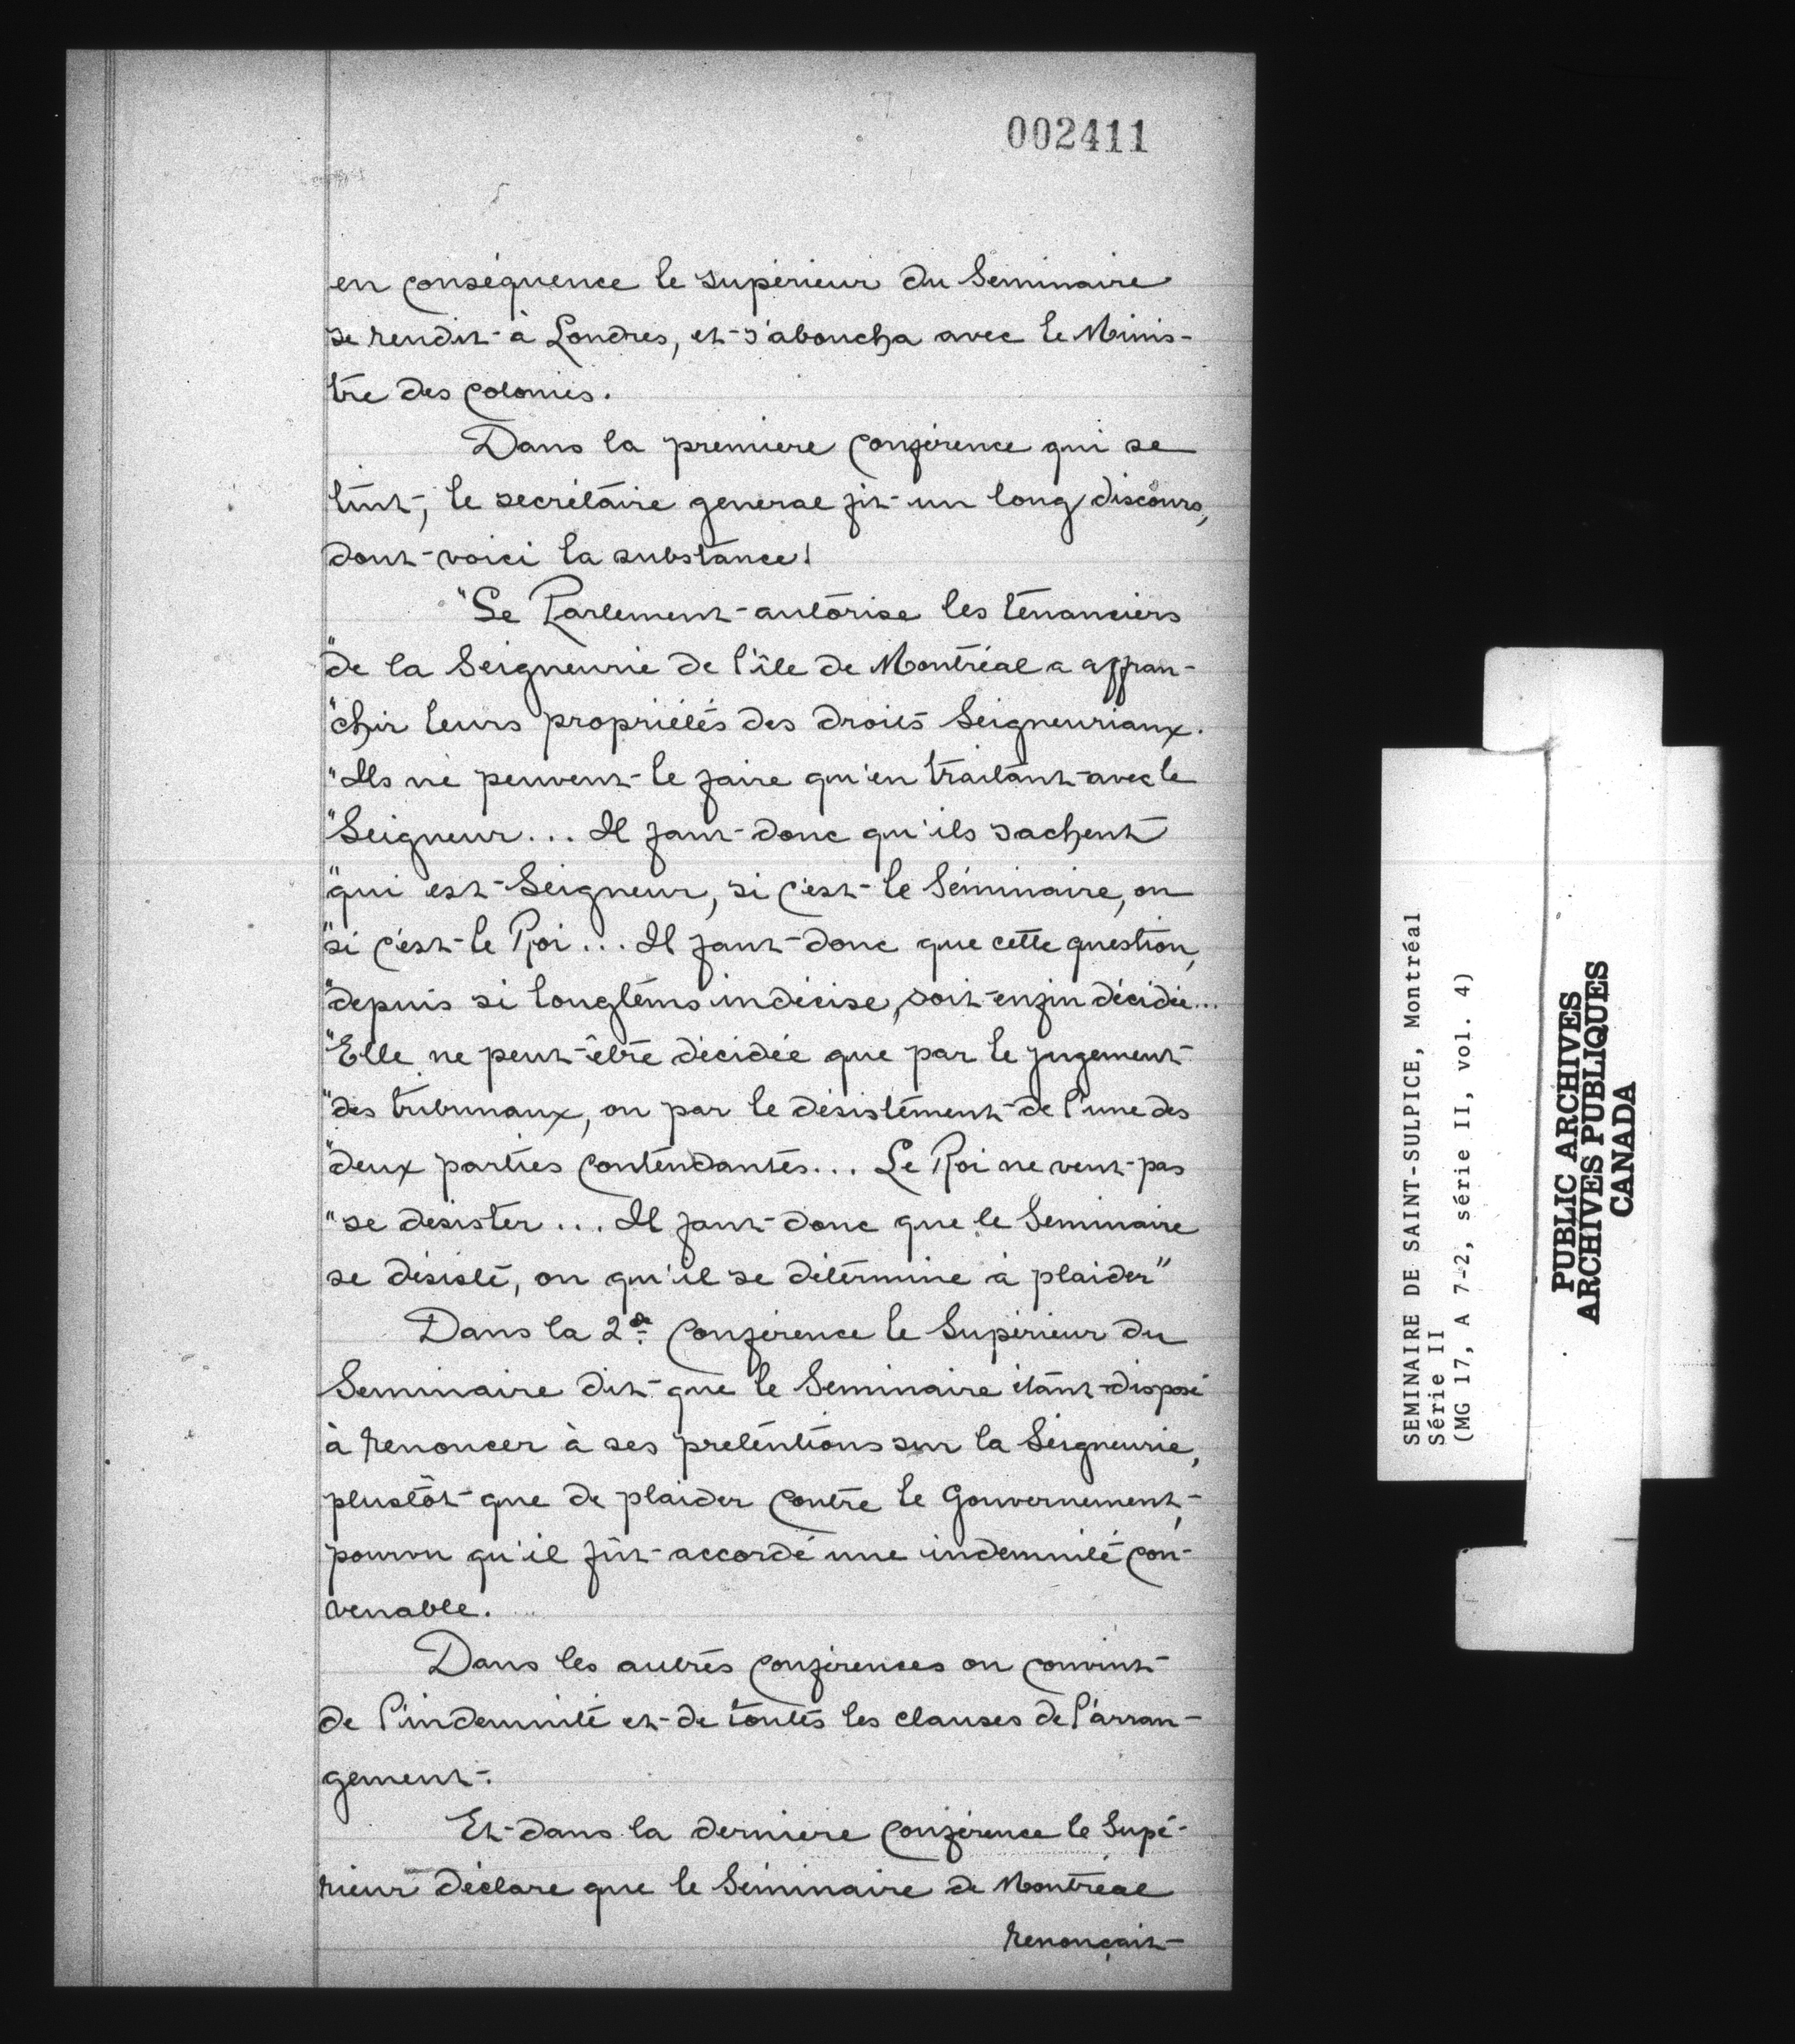 002411
en conséquence le supérieur du Seminaire
se rendit à Londres, et s'aboucha avec le Minis-
tre des Colonies.
Dans la premiere Conférence qui se
tint, le secrétaire general fit un long discours,
dont voici la substance!
"Le Parlement autorise les tenanciers
"de la Seigneurie de l'île de Montréal a affran-
"chir leurs propriétés des droits Seigneuriaux.
"Ils ne peuvent le faire qu'en traitant avec le
"Seigneur... Il faut donc qu'ils sachent
"qui est Seigneur, si c'est le Séminaire, ou
"si c'est le Roi... Il faut donc que cette question,
"depuis si longtems indécise, soit enfin décidée...
"Elle ne peut être décidée que par le jugement
"des tribunaux, ou par le désistement de l'une des
"deux parties Contendantes... Le Roi ne veut pas
"se desister... Il faut donc que le Seminaire
se désiste, ou qu'il se détermine à plaider"
Dans la 2de Conférence le Supérieur du
Seminaire dit que le Seminaire étant disposé
à renoncer à ses pretentions sur la Seigneurie,
plustôt que de plaider Contre le Gouvernement,
pourvu qu'il fût accordé une indemnité con-
venable.
Dans les autres Conférences on convint
de l'indemnité et de toutes les clauses de l'arran-
gement.
Et dans la derniere Conférence le Supé-
rieur déclare que le Séminaire de Montréal
renonçait
SEMINAIRE DE SAINT-SULPICE, Montréal
Série II
(MG 17, A 7-2, série II, vol. 4)
PUBLIC ARCHIVES
ARCHIVES PUBLIQUES
CANADA